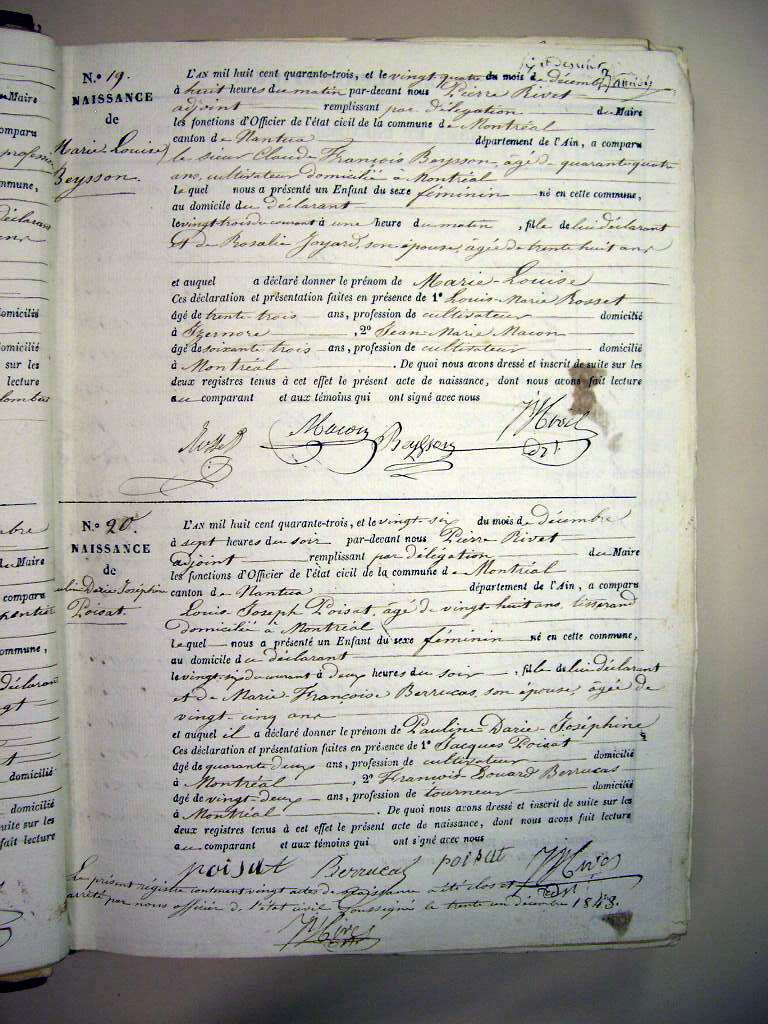 N.º 19.
NAISSANCE
de
Marie Louise
Beysson.
L'AN mil huit cent quarante-trois, et le vingt quatre du mois de décembre
à huit heures du matin par-devant nous Pierre Rivet
adjoint remplissant par délégation du Maire
les fonctions d'Officier de l'état civil de la commune de Montréal
canton de Nantua département de l'Ain, a comparu
le sieur Claude François Beysson, âgé de quarante quatre
ans, cultivateur domicilié à Montréal
lequel nous a présenté un Enfant du sexe féminin né en cette commune,
au domicile du déclarant
le vingt trois du courant à une heure du matin, fille de lui déclarant
et de Rosalie Joyard, son épouse, âgée de trente huit ans
et auquel a déclaré donner le prénom de Marie-Louise
Ces déclaration et présentation faites en présence de 1º Louis-Marie Rosset
âgé de trente-trois ans, profession de cultivateur domicilié
à Izernore, 2º Jean-Marie Macon
âgé de soixante trois ans, profession de cultivateur domicilié
à Montréal. De quoi nous avons dressé et inscrit de suite sur les
deux registres tenus à cet effet le présent acte de naissance, dont nous avons fait lecture
au comparant et aux témoins qui ont signé avec nous
Rosset Macon Beysson Rivet
adt.
N.º 20.
NAISSANCE
de
Pauline Darie Joséphine
Poisat.
L'AN mil huit cent quarante-trois, et le vingt-six du mois de décembre
à sept heures du soir par-devant nous Pierre Rivet
adjoint remplissant par délégation du Maire
les fonctions d'Officier de l'état civil de la commune de Montréal
canton de Nantua département de l'Ain, a comparu
Louis Joseph Poisat, âgé de vingt huit ans, tisserand
domicilié à Montréal
lequel nous a présenté un Enfant du sexe féminin né en cette commune,
au domicile du déclarant
le vingt-six du courant à deux heures du soir, fille de lui déclarant
et de Marie Françoise Berrucas, son épouse, âgée de
vingt-cinq ans
et auquel il a déclaré donner le prénom de Pauline Darie Joséphine
Ces déclaration et présentation faites en présence de 1º Jacques Poisat
âgé de quarante deux ans, profession de cultivateur domicilié
à Montréal, 2º François Edouard Berrucas
âgé de vingt-deux ans, profession de tourneur domicilié
à Montréal. De quoi nous avons dressé et inscrit de suite sur les
deux registres tenus à cet effet le présent acte de naissance, dont nous avons fait lecture
au comparant et aux témoins qui ont signé avec nous
poisat Berrucas poisat Rivet
adt.
Le présent régistre contenant vingt actes de naissance a été clos et
arrêté par nous officier de l'état civil soussigné le trente un décembre 1843.
Rivet